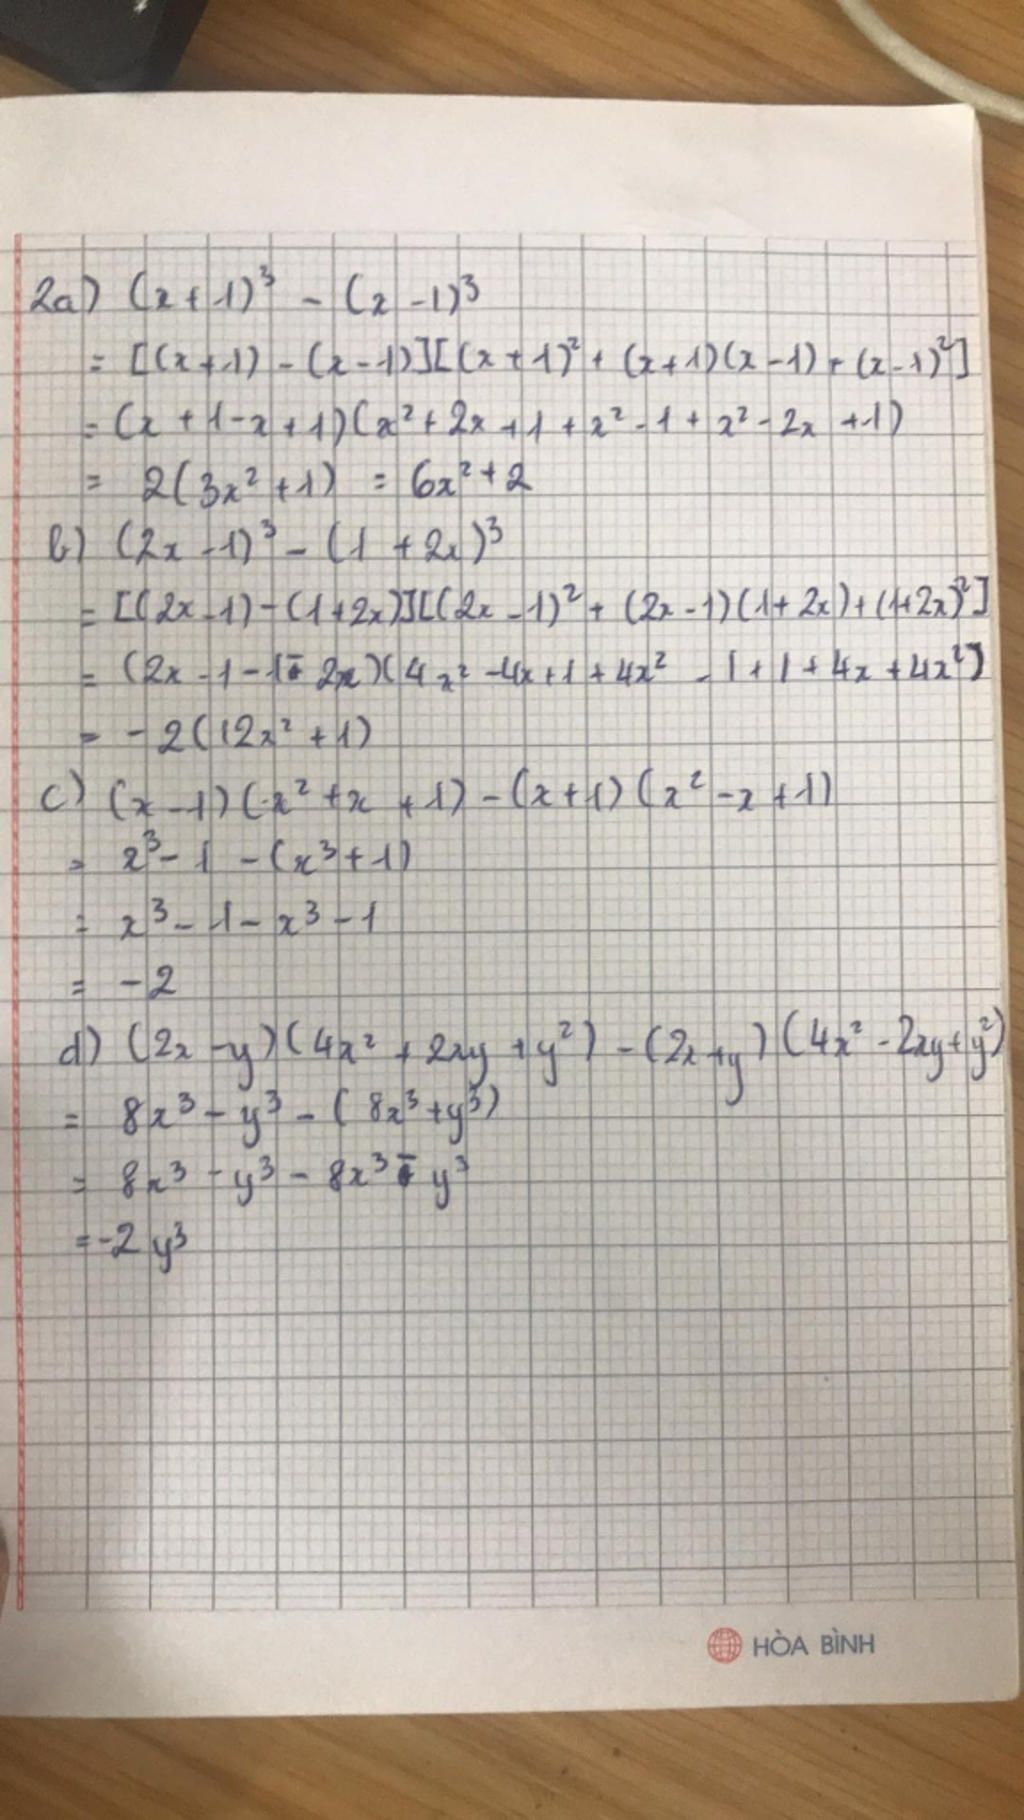 2a) (x+1)³ - (x-1)³
= [(x+1) - (x-1)][(x+1)² + (x+1)(x-1) + (x-1)²]
= (x+1-x+1)(x²+2x+1+x²-1+x²-2x+1)
= 2(3x²+1) = 6x²+2
b) (2x-1)³ - (1+2x)³
= [(2x-1)-(1+2x)][(2x-1)² + (2x-1)(1+2x)+(1+2x)²]
= (2x-1-1-2x)(4x²-4x+1+4x²-1+1+4x+4x²)
= -2(12x²+1)
c) (x-1)(x²+x+1)-(x+1)(x²-x+1)
= x³-1-(x³+1)
= x³-1-x³-1
= -2
d) (2x-y)(4x²+2xy+y²)-(2x+y)(4x²-2xy+y²)
= 8x³-y³-(8x³+y³)
= 8x³-y³-8x³-y³
= -2y³
HÒA BÌNH